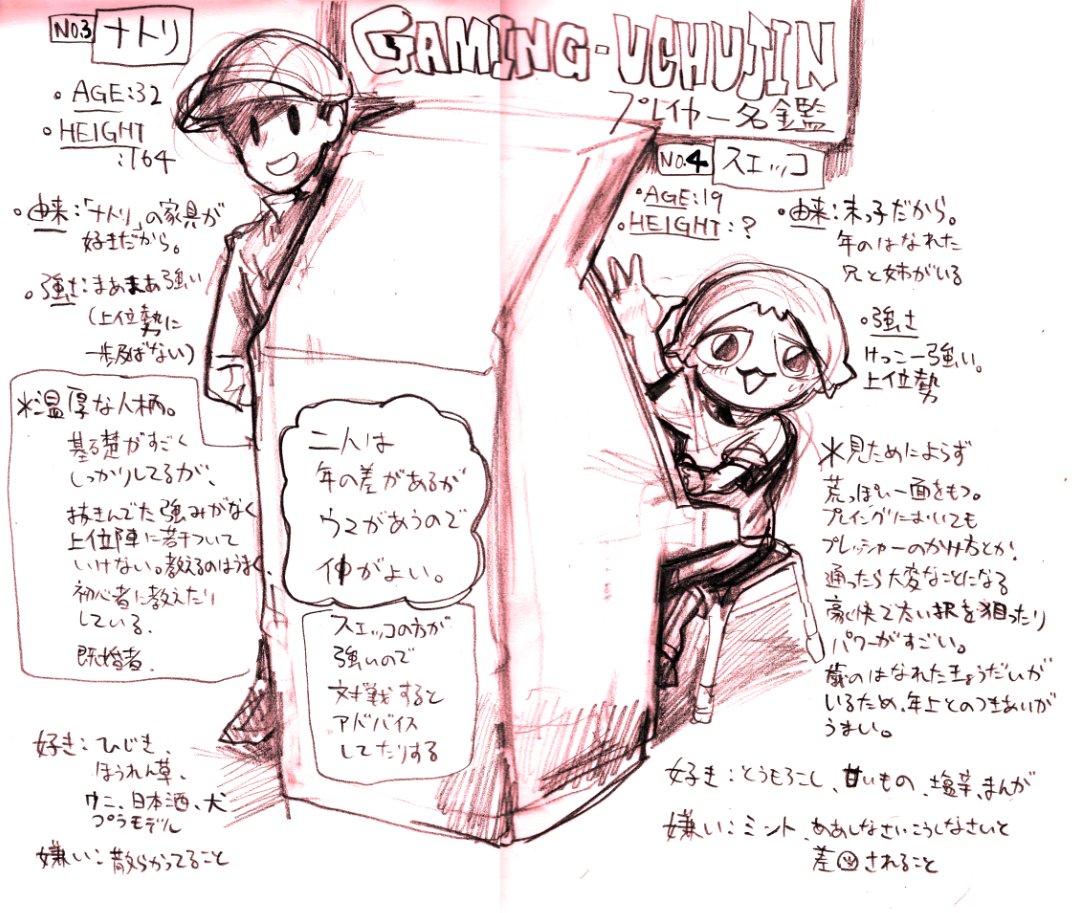 GAMING-UCHUJIN
プレイヤー名鑑
NO.3 ナトリ
・AGE:32
・HEIGHT
:164
・由来:「ナトリ」の家具が
好きだから。
・強さ:まぁまぁ強い
(上位勢に
一歩及ばない)
*温厚な人柄。
基礎がすごく
しっかりしてるが、
抜きんでた強みがなく
上位陣に若干ついて
いけない。教えるのはうまく、
初心者に教えたり
している、
既婚者、
好き:ひじき、
ほうれん草、
ウニ、日本酒、犬
プラモデル
嫌い:散らかってること
二人は
年の差があるが
ウマがあうので
仲がよい。
スエッコの方が
強いので
対戦すると
アドバイス
してたりする
NO.4 スエッコ
・AGE:19
・HEIGHT:?
・由来:末っ子だから。
年のはなれた
兄と姉がいる
・強さ
けっこー強い。
上位勢
*見ためによらず
荒っぽい一面をもつ。
プレイングにおいても
プレッシャーのかけ方とか、
通ったら大変なことになる
豪快で太い択を狙ったり
パワーがすごい。
歳のはなれたきょうだいが
いるため、年上とのつきあいが
うまい。
好き:とうもろこし、甘いもの、塩辛、まんが
嫌い:ミント、ああしなさいこうしなさいと
差図されること